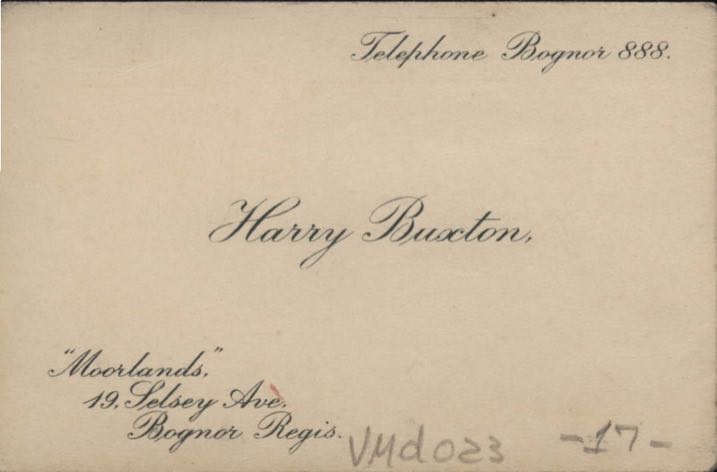 Telephone Bognor 888.
Harry Buxton,
"Moorlands,"
19, Selsey Ave,
Bognor Regis.
VMd023 -17-